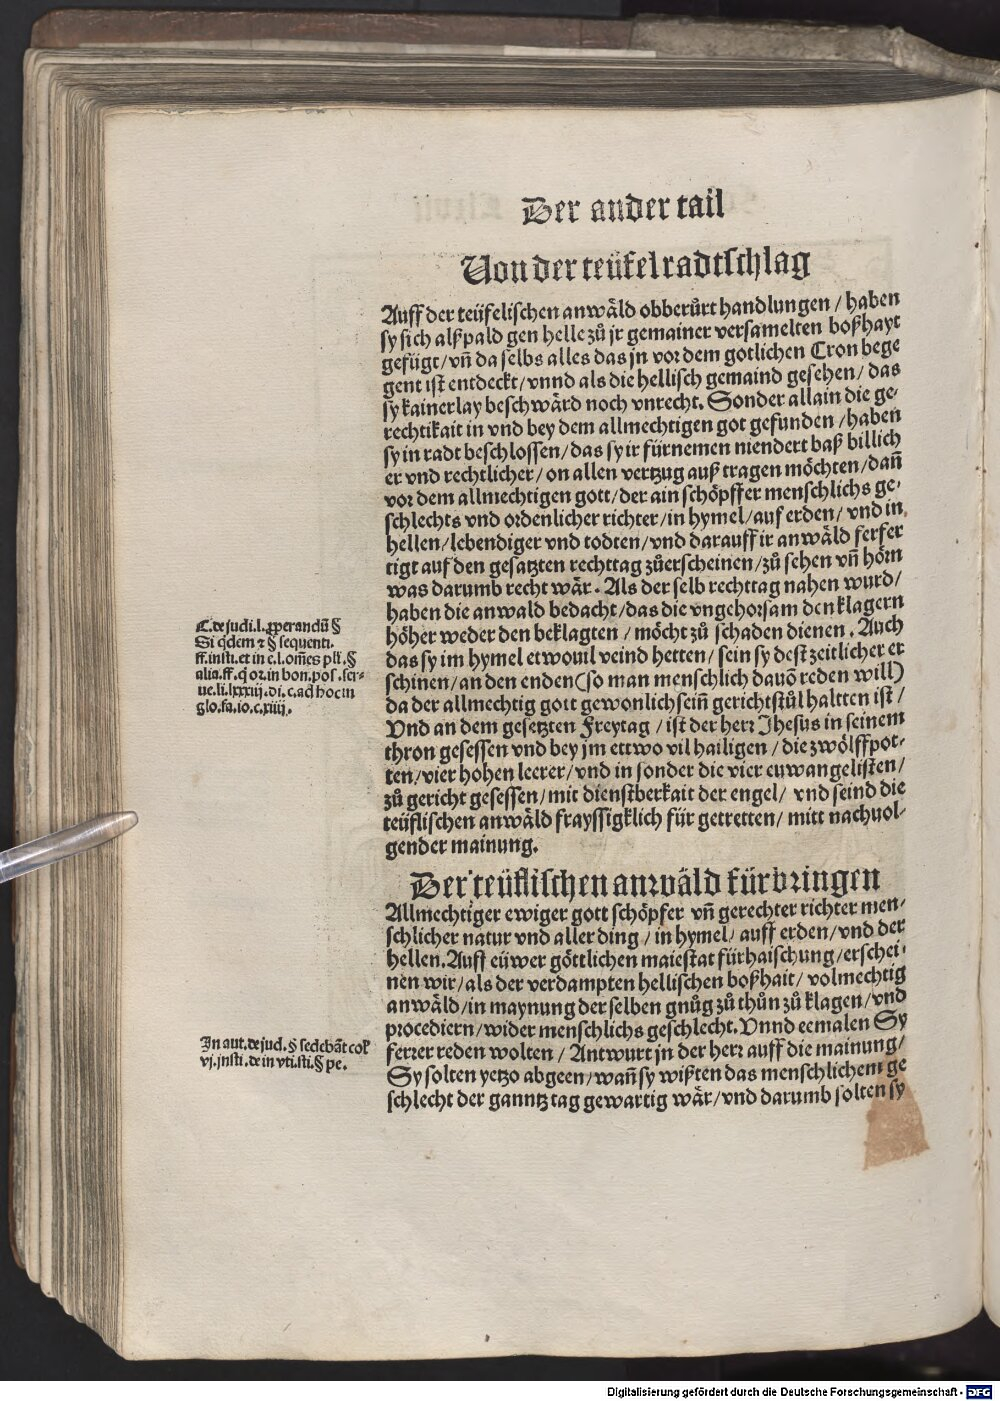 Der ander tail
Von der teüfel radtschlag
Auff der teüfelischen anwäld obberůrt handlungen / haben
sy sich alßpald gen helle zů jr gemainer versamelten boßhayt
gefügt / vñ da selbs alles das jn vor dem gotlichen Cron bege
gent ist entdeckt / vnnd als die hellisch gemaind gesehen / das
sy kainerlay beschwärd noch vnrecht. Sonder allain die ge⸗
rechtikait in vnd bey dem allmechtigen got gefunden / haben
sy in radt beschlossen / das sy ir fürnemen niendert baß billich
er vnd rechtlicher / on allen vertzug auß tragen möchten / dañ
vor dem allmechtigen gott / der ain schöpffer menschlichs ge⸗
schlechts vnd ordenlicher richter / in hymel / auf erden / vnd in
hellen / lebendiger vnd todten / vnd darauff ir anwäld ferfer
tigt auf den gesatzten rechttag zůerscheinen / zů sehen vñ hörn
was darumb recht wär. Als der selb rechttag nahen wurd /
haben die anwald bedacht / das die vngehorsam den klagern
höher weder den beklagten / möcht zů schaden dienen. Auch
das sy im hymel etwouil veind hetten / sein sy dest zeitlicher er
schinen / an den enden (so man menschlich dauō reden will)
da der allmechtig gott gewonlich seiñ gerichtstůl haltten ist /
Vnd an dem gesetzten Freytag / ist der herr Jhesus in seinem
thron gesessen vnd bey jm ettwo vil hailigen / die zwölffpot⸗
ten / vier hohen leerer / vnd in sonder die vier euwangelisten /
zů gericht gesessen / mit dienstberkait der engel / vnd seind die
teüflischen anwäld frayssigklich für getretten / mitt nachuol⸗
gender mainung.
C. de judi. l. ꝓperandū §
Si qdem ⁊ § sequenti.
ff. insti. et in e. l. om̄es pll. §
alia. ff. q̄ or. in bon. pos. ser⸗
ue. li. lxxxiij. di. c. ad hoc in
glo. fa. io. c. xiiij.
Der teüflischen anwäld fürbringen
Allmechtiger ewiger gott schöpfer vñ gerechter richter men⸗
schlicher natur vnd aller ding / in hymel / auff erden / vnd der
hellen. Auff eüwer göttlichen maiestat fürhaischung / erschei⸗
nen wir / als der verdampten hellischen boßhait / volmechtig
anwäld / in maynung der selben gnůg zů thůn zů klagen / vnd
procediern / wider menschlichs geschlecht. Vnnd eemalen Sy
ferrer reden wolten / Antwurt jn der herr auff die mainung /
Sy solten yetzo abgeen / wañ sy wißten das menschlichem ge
schlecht der ganntz tag gewartig wär / vnd darumb solten sy
In aut. de jud. § sedebāt col
vj. insti. de in vti. sti. § pe.
Digitalisierung gefördert durch die Deutsche Forschungsgemeinschaft - DFG